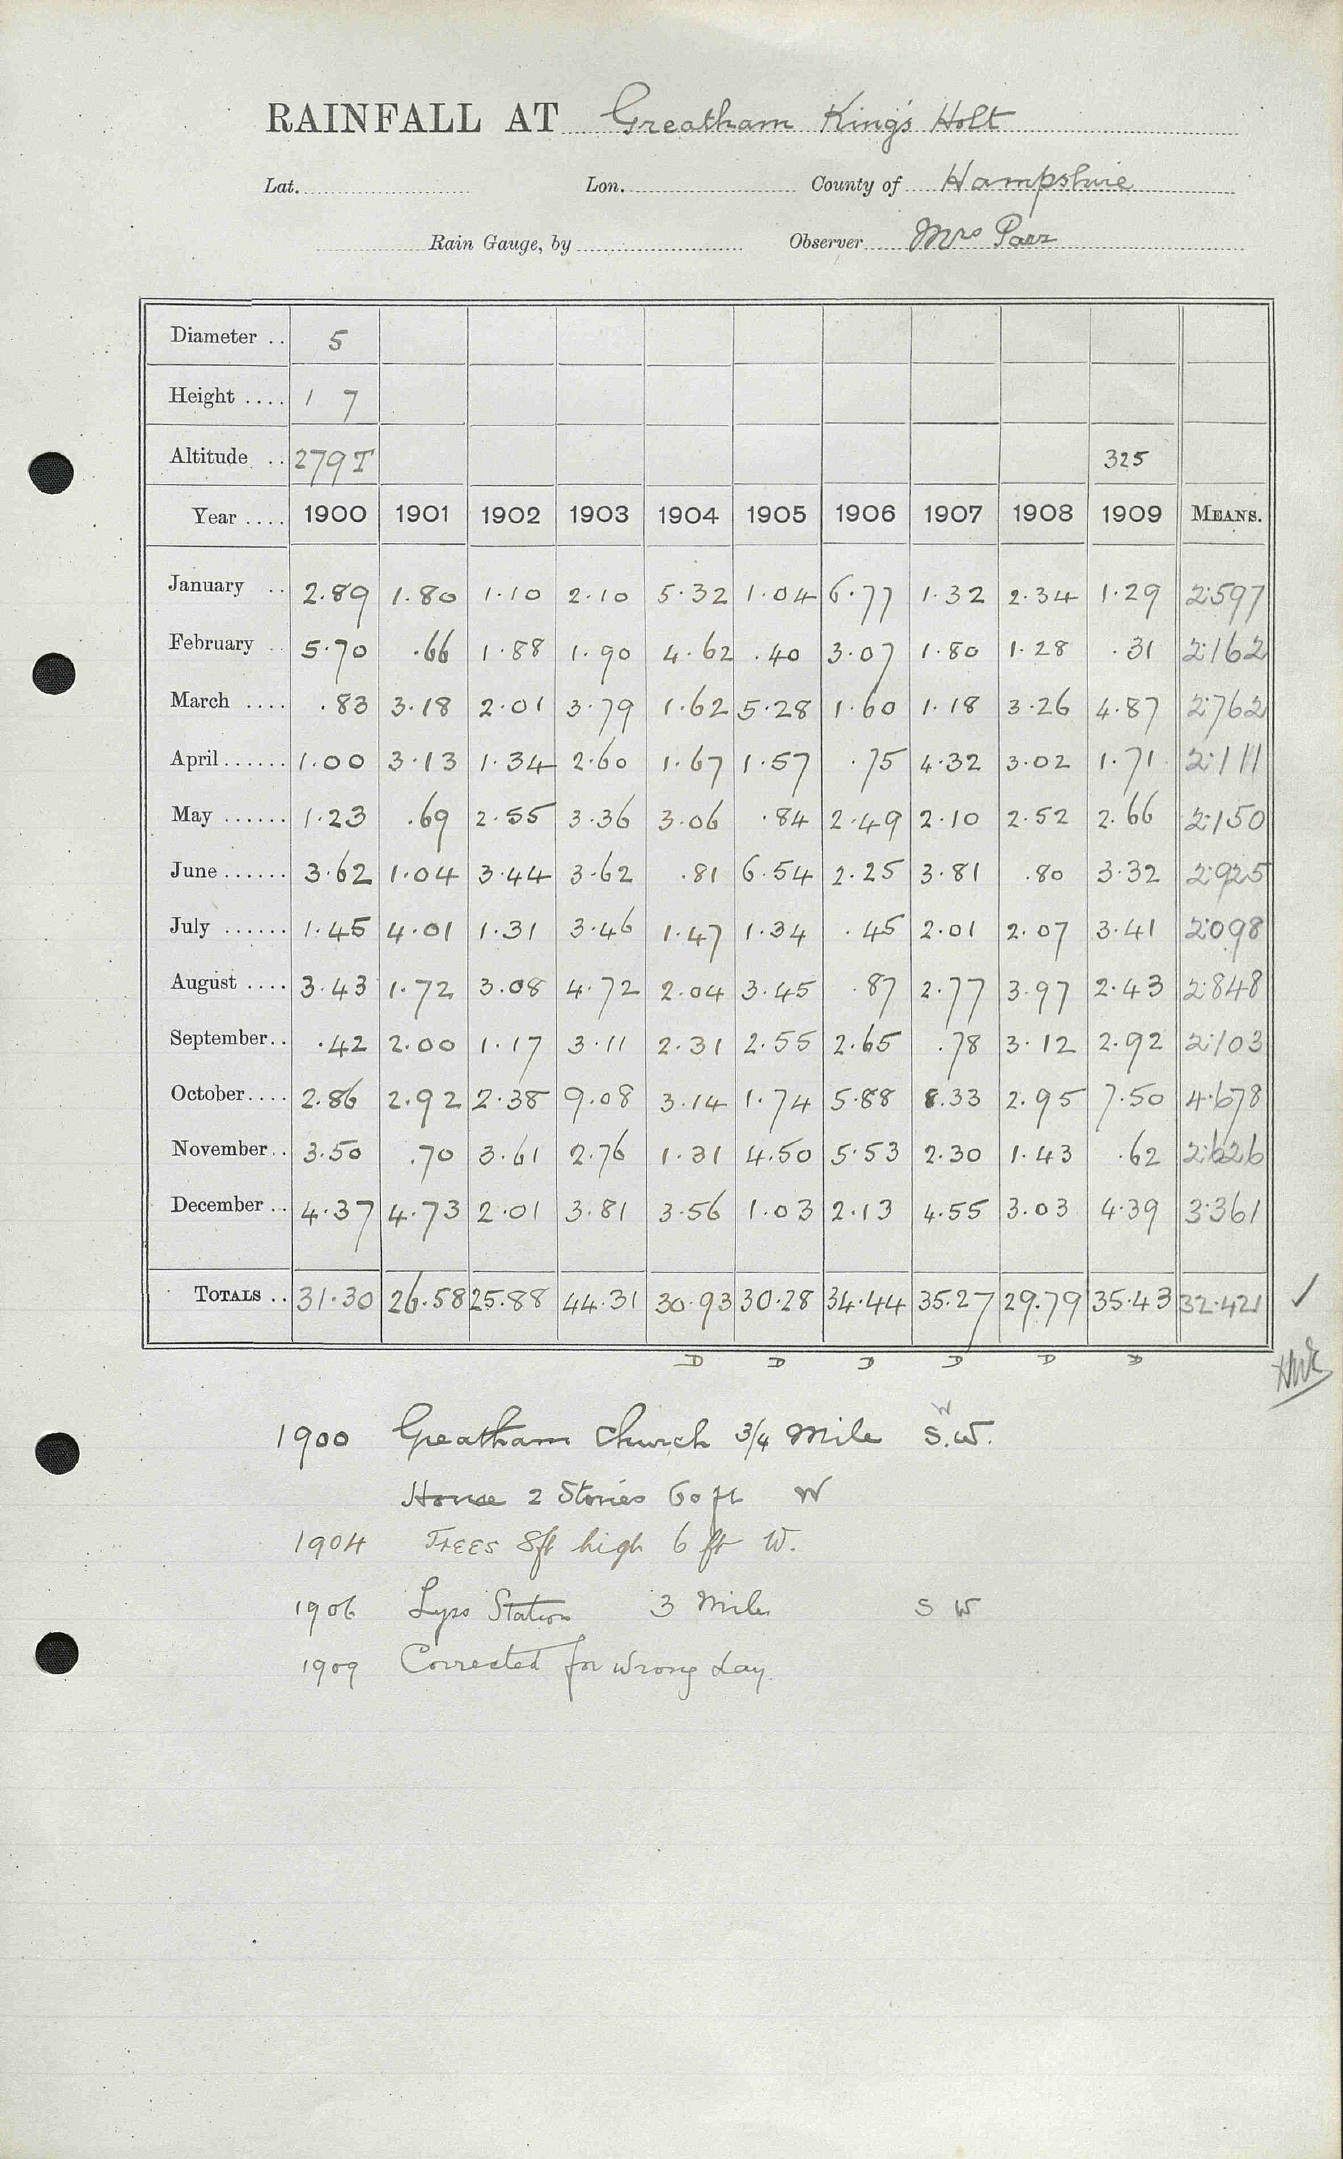 RAINFALL AT Greatham King's Holt
Lat. Lon. County of Hampshire
Rain Gauge, by Observer Mrs Parr
Diameter .. 5
Height .... 1 7
Altitude .. 279T 325
Year .... 1900 1901 1902 1903 1904 1905 1906 1907 1908 1909 MEANS.
January .. 2.89 1.80 1.10 2.10 5.32 1.04 6.77 1.32 2.34 1.29 2.597
February .. 5.70 .66 1.88 1.90 4.62 .40 3.07 1.80 1.28 .31 2.162
March .... .83 3.18 2.01 3.79 1.62 5.28 1.60 1.18 3.26 4.87 2.762
April ...... 1.00 3.13 1.34 2.60 1.67 1.57 .75 4.32 3.02 1.71 2.111
May ...... 1.23 .69 2.55 3.36 3.06 .84 2.49 2.10 2.52 2.66 2.150
June ...... 3.62 1.04 3.44 3.62 .81 6.54 2.25 3.81 .80 3.32 2.925
July ...... 1.45 4.01 1.31 3.46 1.47 1.34 .45 2.01 2.07 3.41 2.098
August .... 3.43 1.72 3.08 4.72 2.04 3.45 .87 2.77 3.97 2.43 2.848
September.. .42 2.00 1.17 3.11 2.31 2.55 2.65 .78 3.12 2.92 2.103
October.... 2.86 2.92 2.38 9.08 3.14 1.74 5.88 8.33 2.95 7.50 4.678
November.. 3.50 .70 3.61 2.76 1.31 4.50 5.53 2.30 1.43 .62 2.626
December .. 4.37 4.73 2.01 3.81 3.56 1.03 2.13 4.55 3.03 4.39 3.361
TOTALS .. 31.30 26.58 25.88 44.31 30.93 30.28 34.44 35.27 29.79 35.43 32.421 ✓
D D D D D D
W
1900 Greatham Church 3/4 Mile S.W.
House 2 Stories 60 ft W
1904 Trees 8ft high 6 ft W.
1906 Lyss Station 3 Miles S W
1909 Corrected for wrong day.